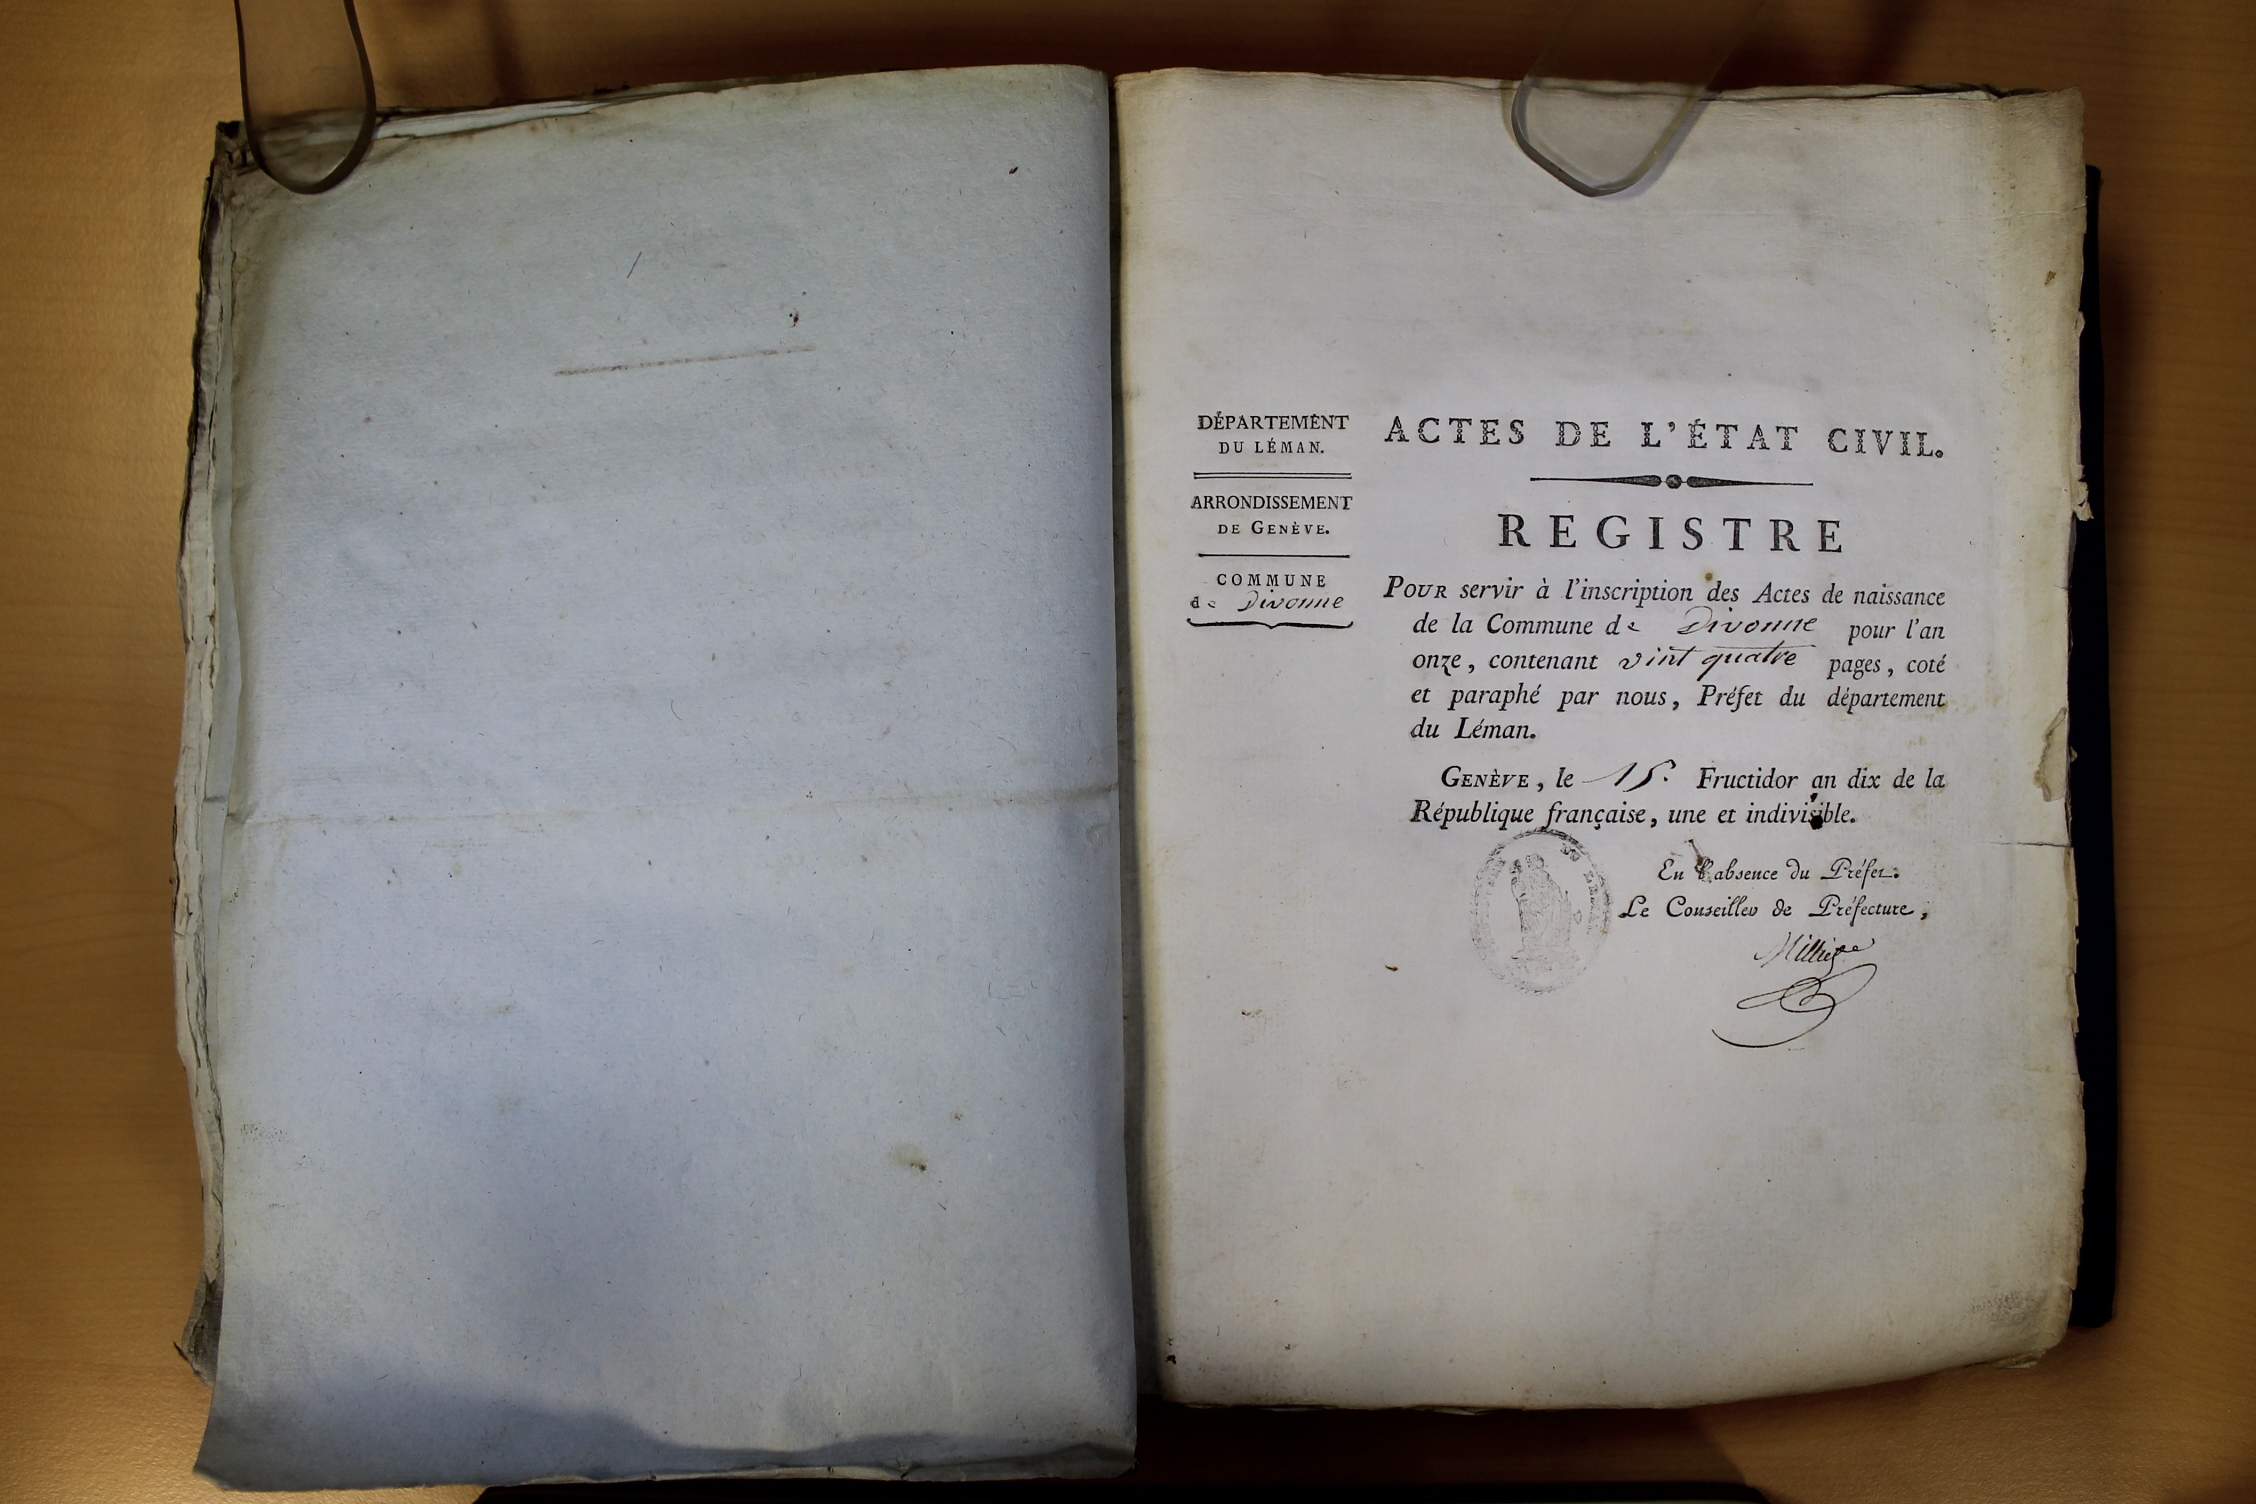 DÉPARTEMENT
DU LÉMAN.
ARRONDISSEMENT
DE GENÈVE.
COMMUNE
de Divonne
ACTES DE L'ÉTAT CIVIL.
REGISTRE
POUR servir à l'inscription des Actes de naissance
de la Commune de Divonne pour l'an
onze, contenant vint quatre pages, coté
et paraphé par nous, Préfet du département
du Léman.
GENÈVE, le 15. Fructidor an dix de la
République française, une et indivisible.
En l'absence du Préfet.
Le Conseiller de Préfecture,